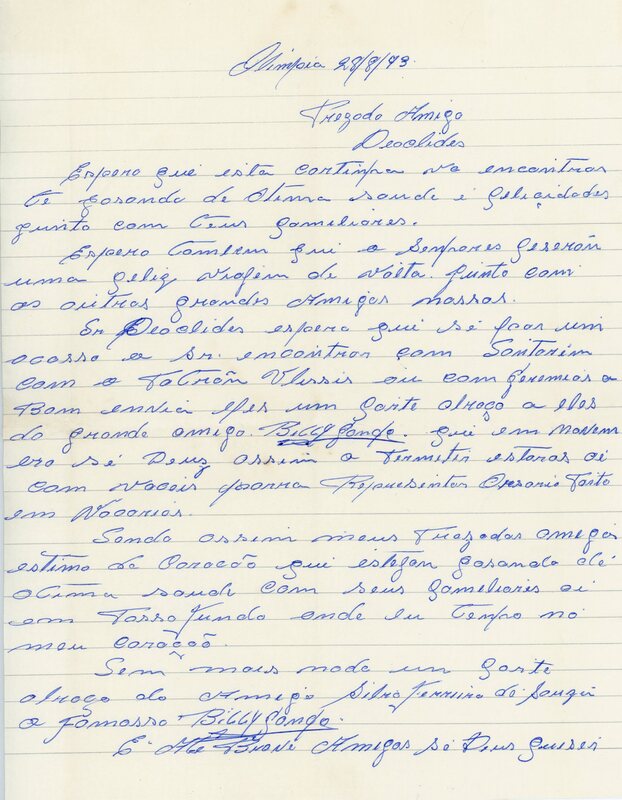 Olimpia 28/8/93.
Prezado Amigo
Deoclides
Espero qui esta cartinha va encontrar
te gosando de otima saude é felicidades
junto com teus familiares.
Espero tambem qui o Senhores fizerõn
uma feliz viagem de volta. junto com
os outros grandes Amigos nossos.
Sr Deoclides espero qui sé por um
acasso o Sr. encontrar com Santarém
com o Patrõn Ulissis ou com Jeremias o
Bom envia lhes um forte abraço a eles
do grande amigo. Billy Gande. qui em Novem
ero sé Deuz assim o Permitir estarei ai
com voceis parra Representar
em Vacarias.
Sendo assim meus Prezados amigos
estimo de Coração qui estejan gosando dé
otima saude com seus familiares ai
em Passo Fundo onde eu tenho no
meu coração.
Sem mais nada um forte
abraço do Amigo Silvo Ferreira de Souza
o famosso Billy Gande.
E Até Brevé Amigos sé Deus quiser